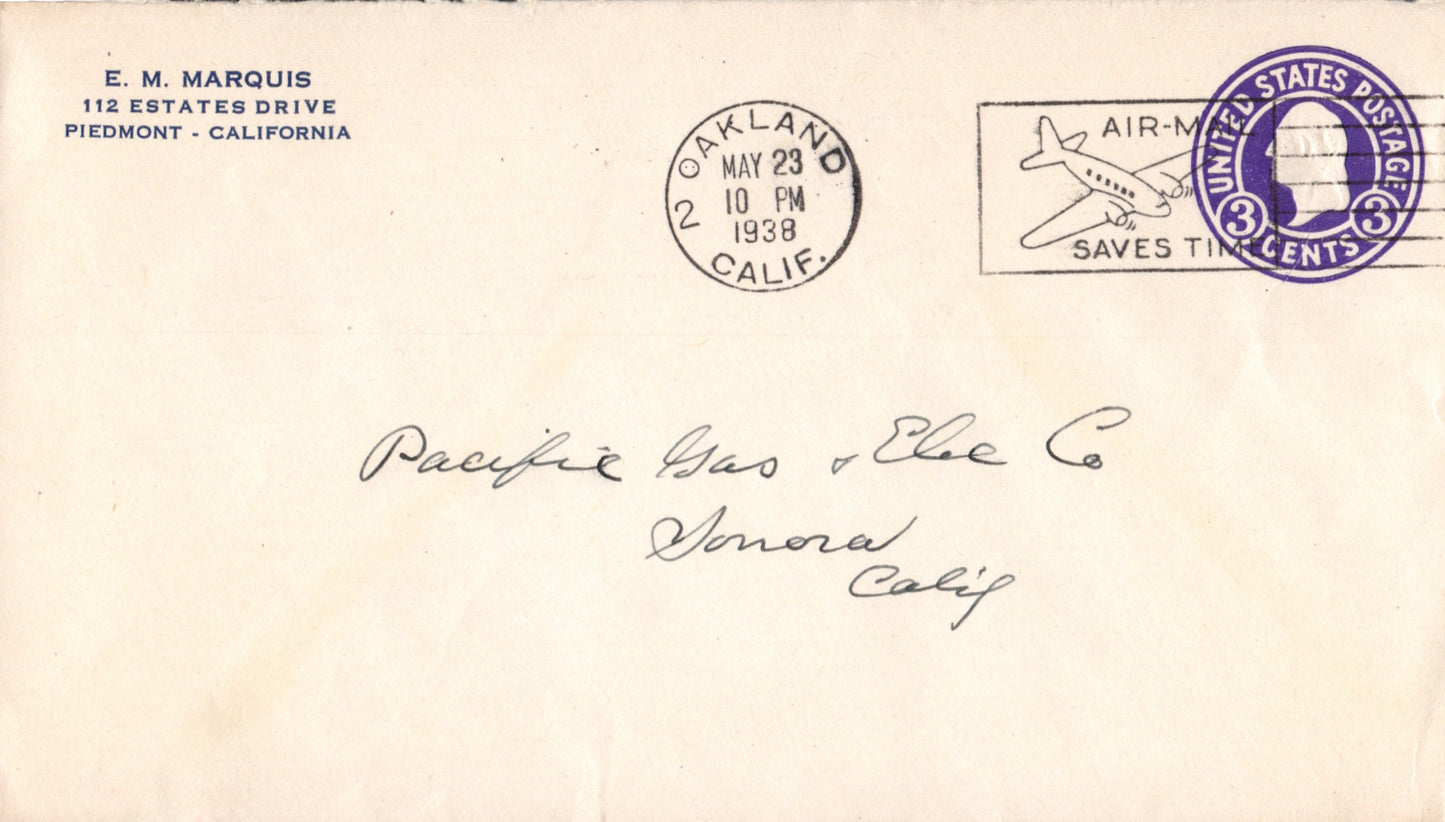 E. M. MARQUIS
112 ESTATES DRIVE
PIEDMONT - CALIFORNIA
OAKLAND
MAY 23
10 PM
1938
2
CALIF.
AIR-MAIL
SAVES TIME
UNITED STATES POSTAGE
3 CENTS 3
Pacific Gas & Elec Co
Sonora
Calif